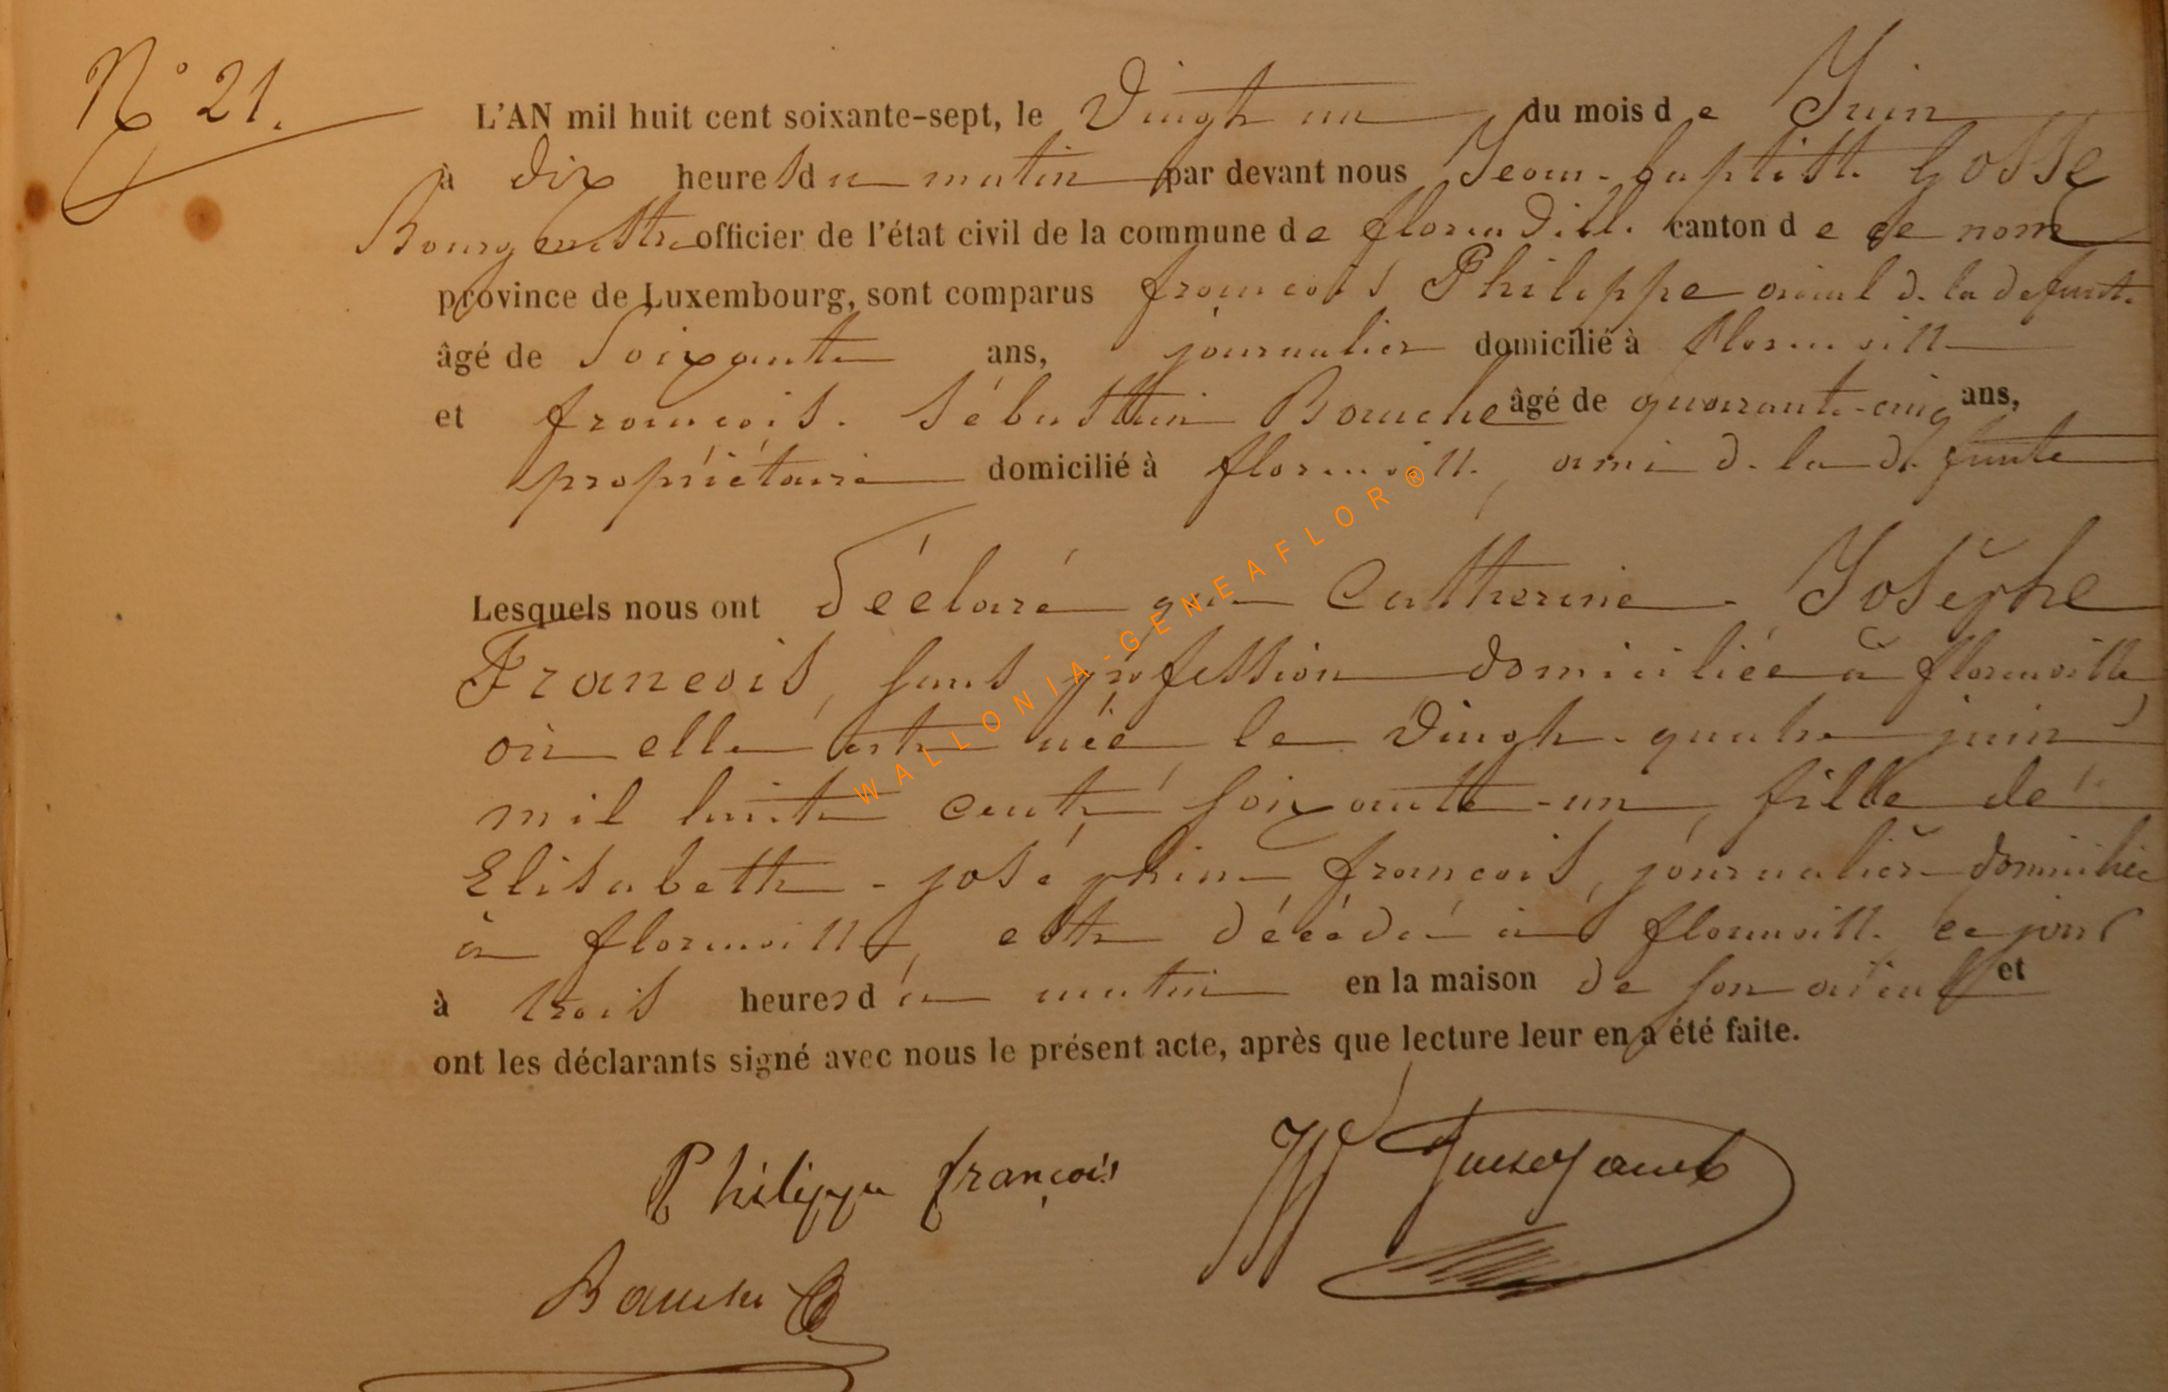 N° 21.
L'AN mil huit cent soixante-sept, le Vingt un du mois de Juin
à dix heures du matin par devant nous Jean-baptiste Gosse
Bourgmestre officier de l'état civil de la commune de florenville canton de ce nom
province de Luxembourg, sont comparus francois Philippe aieul de la defunte
âgé de Soixante ans, journalier domicilié à florenville
et francois. Sébastien Bauche âgé de quarante-cinq ans,
propriétaire domicilié à florenville, ami de la defunte
Lesquels nous ont déclaré que Catherine Josèphe
Francois, sans profession domiciliée à florenville
où elle est née le Vingt-quatre juin
mil huit cent soixante-un, fille de
Elisabeth-joséphine francois, journalière domiciliée
à florenville, est décédée à florenville ce jour
à trois heures du matin en la maison de son aïeul et
ont les déclarants signé avec nous le présent acte, après que lecture leur en a été faite.
Philippe françois
Bauche
WALLONIA-GENEAFLOR®